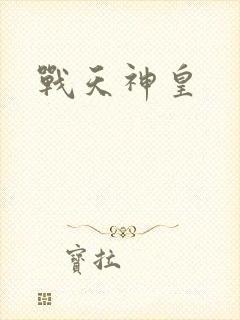 戰天神皇
寶拉